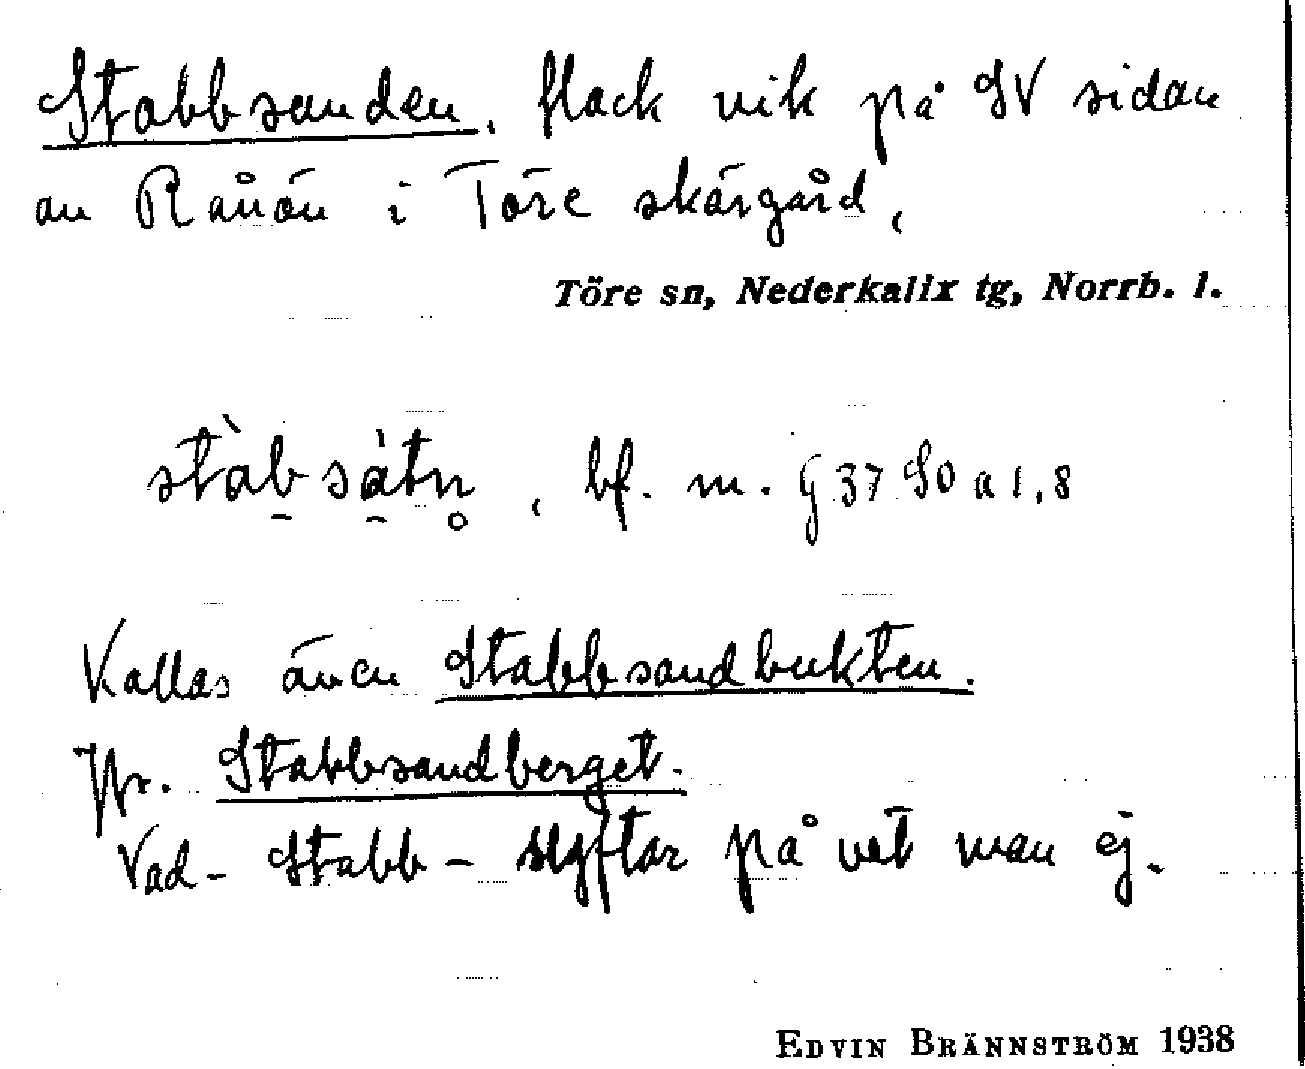 Stabbsanden, flack vik på SV sidan
av Rånön i Töre skärgård,
Töre sn, Nederkalix tg, Norrb. l.
stàb̠sà̠tn̥, bf. m. G 37 So a 1,8
Kallas även Stabbsandbukten.
Jfr. Stabbsandberget.
Vad - Stabb - syftar på vet man ej.
EDVIN BRÄNNSTRÖM 1938